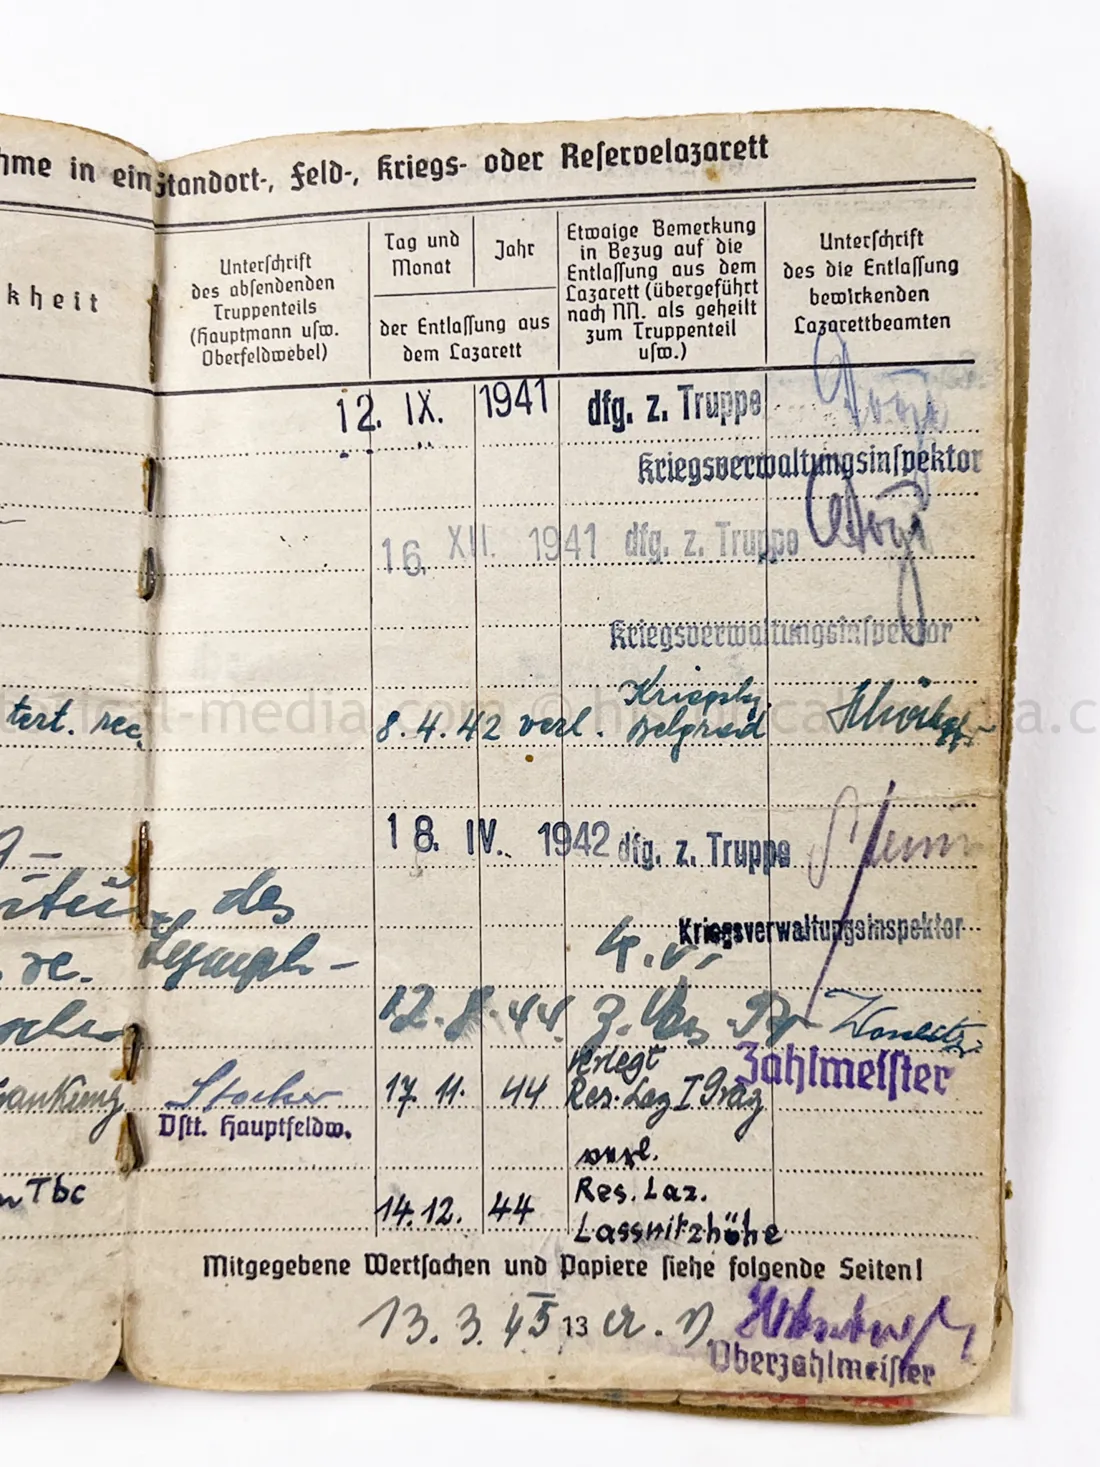 hme in ein Standort-, Feld-, Kriegs- oder Reservelazarett
kheit
Unterschrift
des absendenden
Truppenteils
(Hauptmann usw.
Oberfeldwebel)
Tag und
Monat
Jahr
der Entlassung aus
dem Lazarett
Etwaige Bemerkung
in Bezug auf die
Entlassung aus dem
Lazarett (übergeführt
nach NN. als geheilt
zum Truppenteil
usw.)
Unterschrift
des die Entlassung
bewirkenden
Lazarettbeamten
12. IX. 1941 dfg. z. Truppe
Kriegsverwaltungsinspektor
16. XII. 1941 dfg. z. Truppe
Kriegsverwaltungsinspektor
tert. rec. 8.4.42 verl. Belgrad
18. IV. 1942 dfg. z. Truppe
des
Kriegsverwaltungsinspektor
re. Lymph- k.v.
12.8.44 z.
Zahlmeister
verlegt
Stocker 17. 11. 44 Res. Laz I Graz
Dstt. Hauptfeldw.
verl.
Tbc 14. 12. 44 Res. Laz.
Lassnitzhöhe
Mitgegebene Wertsachen und Papiere siehe folgende Seiten!
13. 3. 45 13
Oberzahlmeister